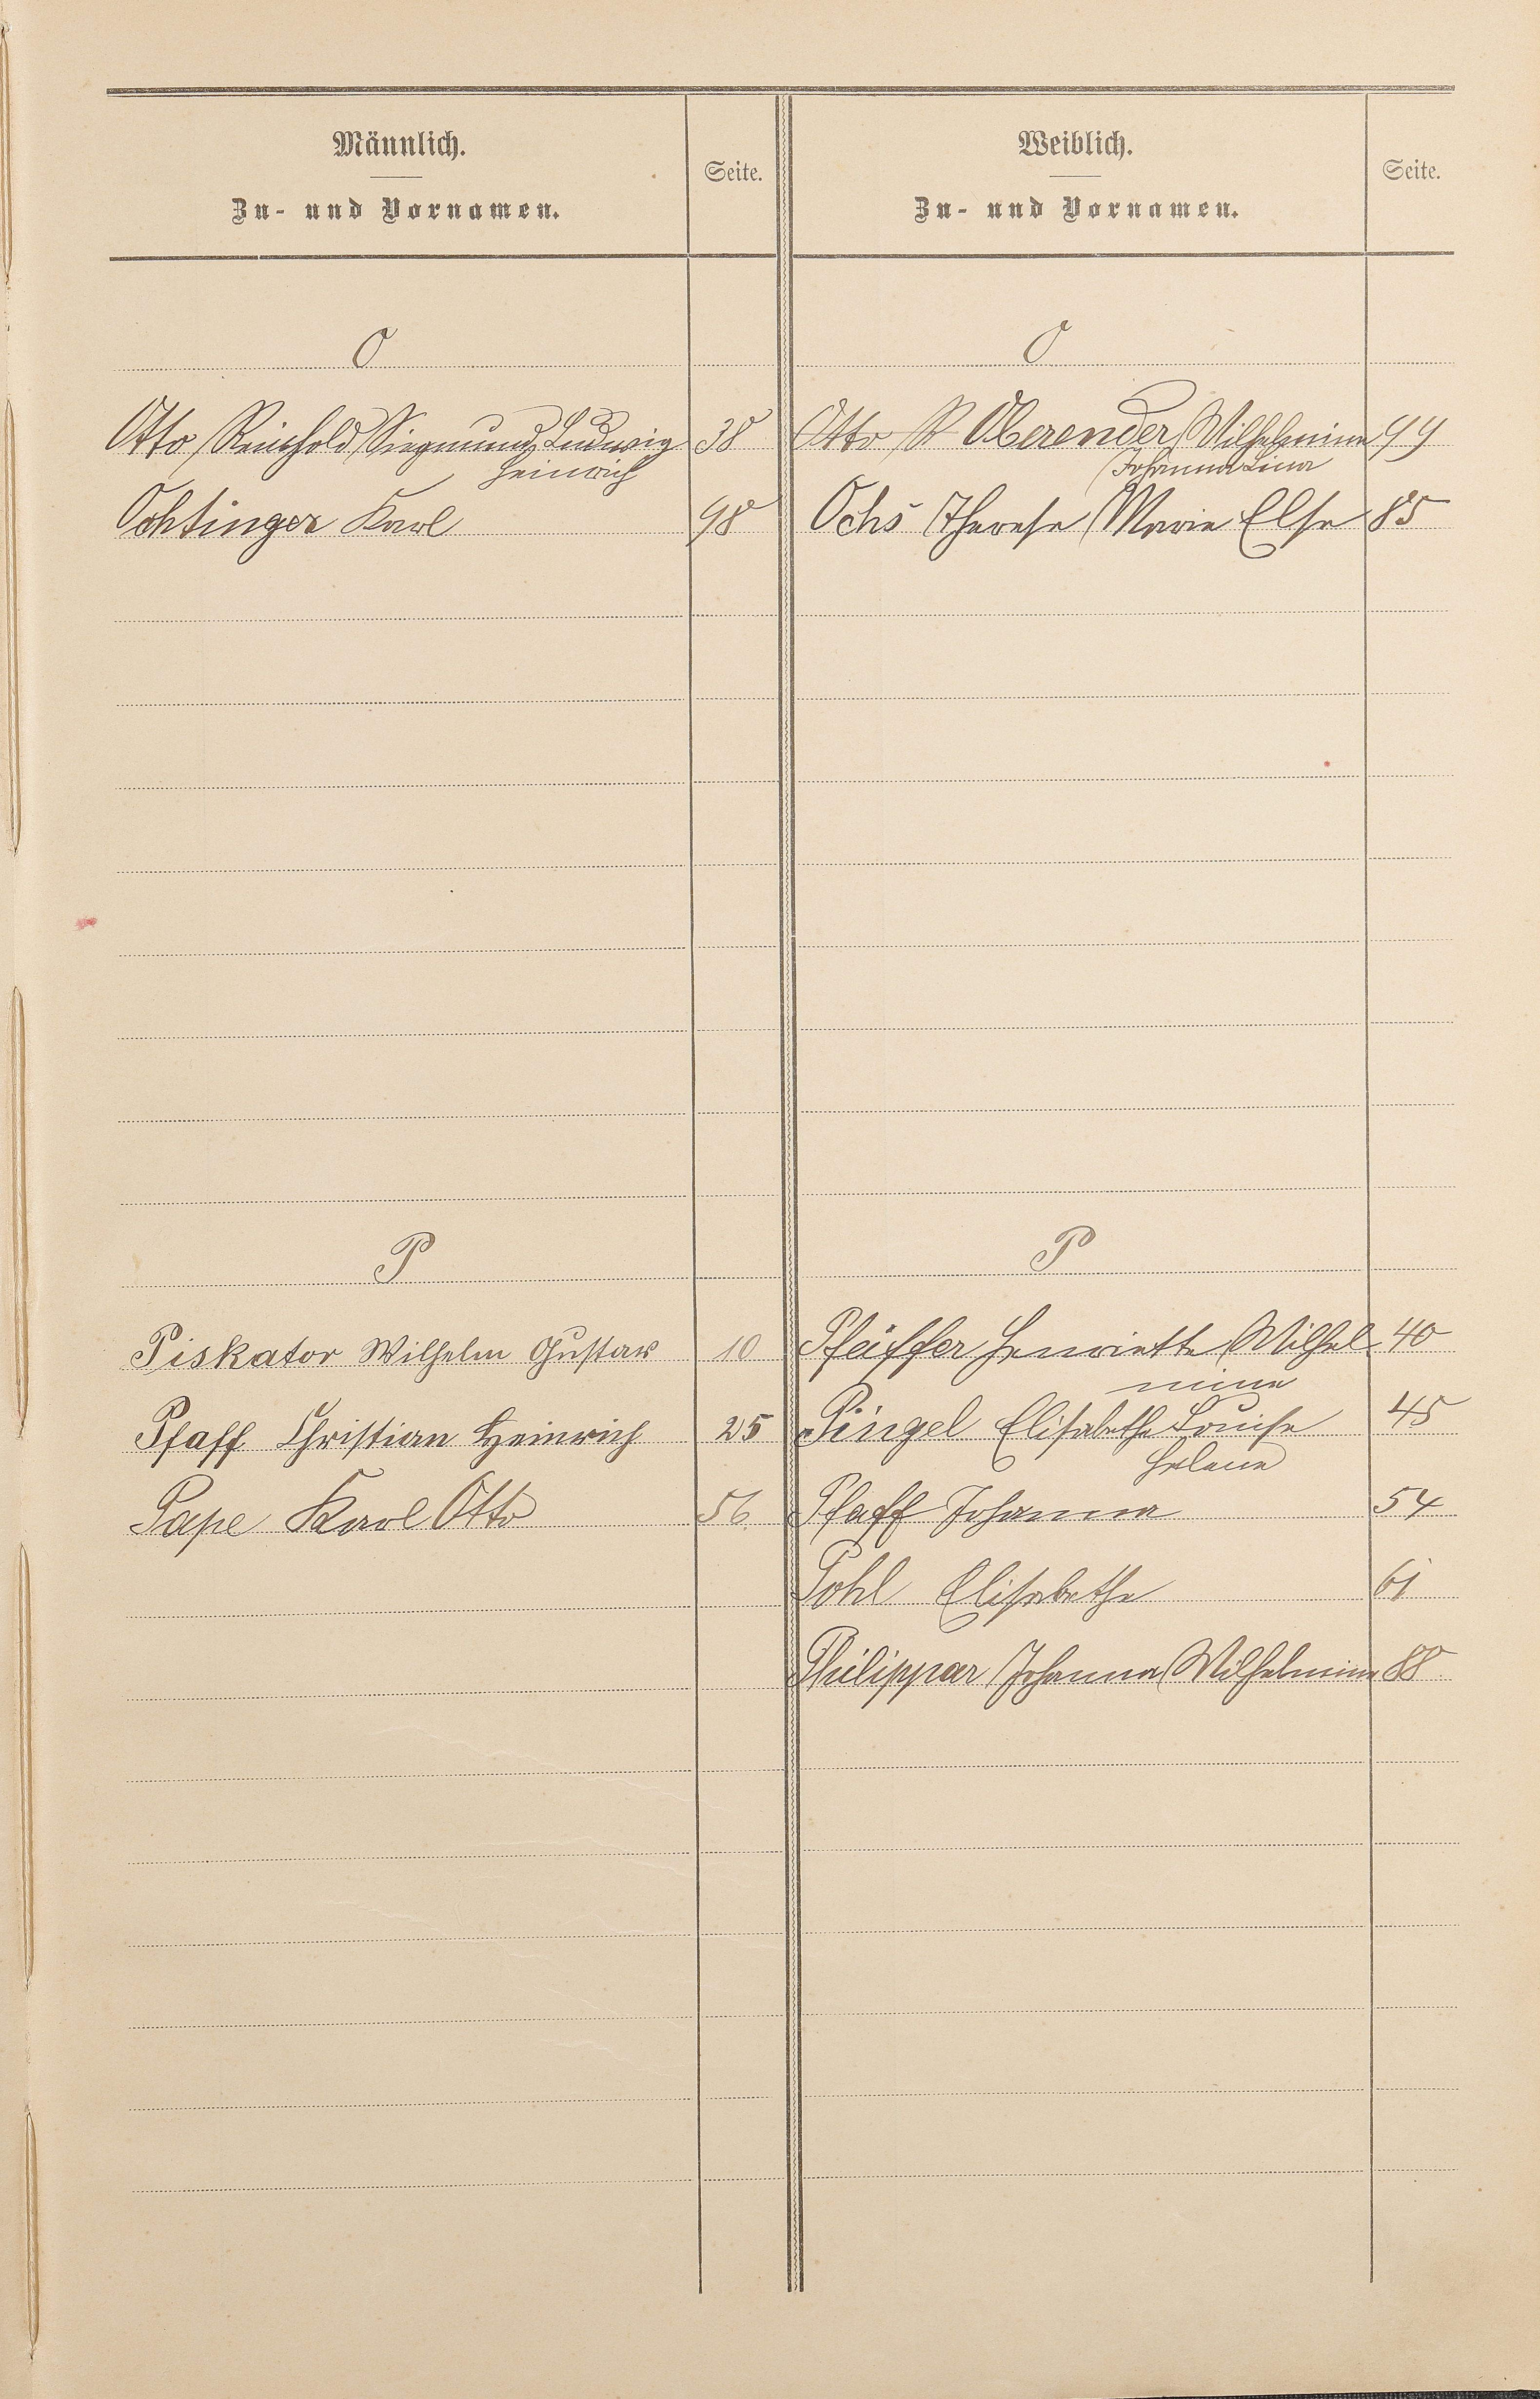 Männlich.
Zu- und Vornamen.
Seite.
Weiblich.
Zu- und Vornamen.
Seite.
O
Otto Reinhold Siegmund Ludwig 38
Heinrich
Ochtinger Karl 98
O
Otto R Oberender Wilhelmine 99
Johanna Lina
Ochs Therese Marie Else 85
P
Piskator Wilhelm Gustav 10
Pfaff Christian Heinrich 25
Pape Karl Otto 56.
P
Pfeiffer Henriette Wilhel- 40
mine
Pingel Elisabethe Louise 45
Helene
Pfaff Johanna 54
Pohl Elisabethe 61
Philippar Johanna Wilhelmine 88